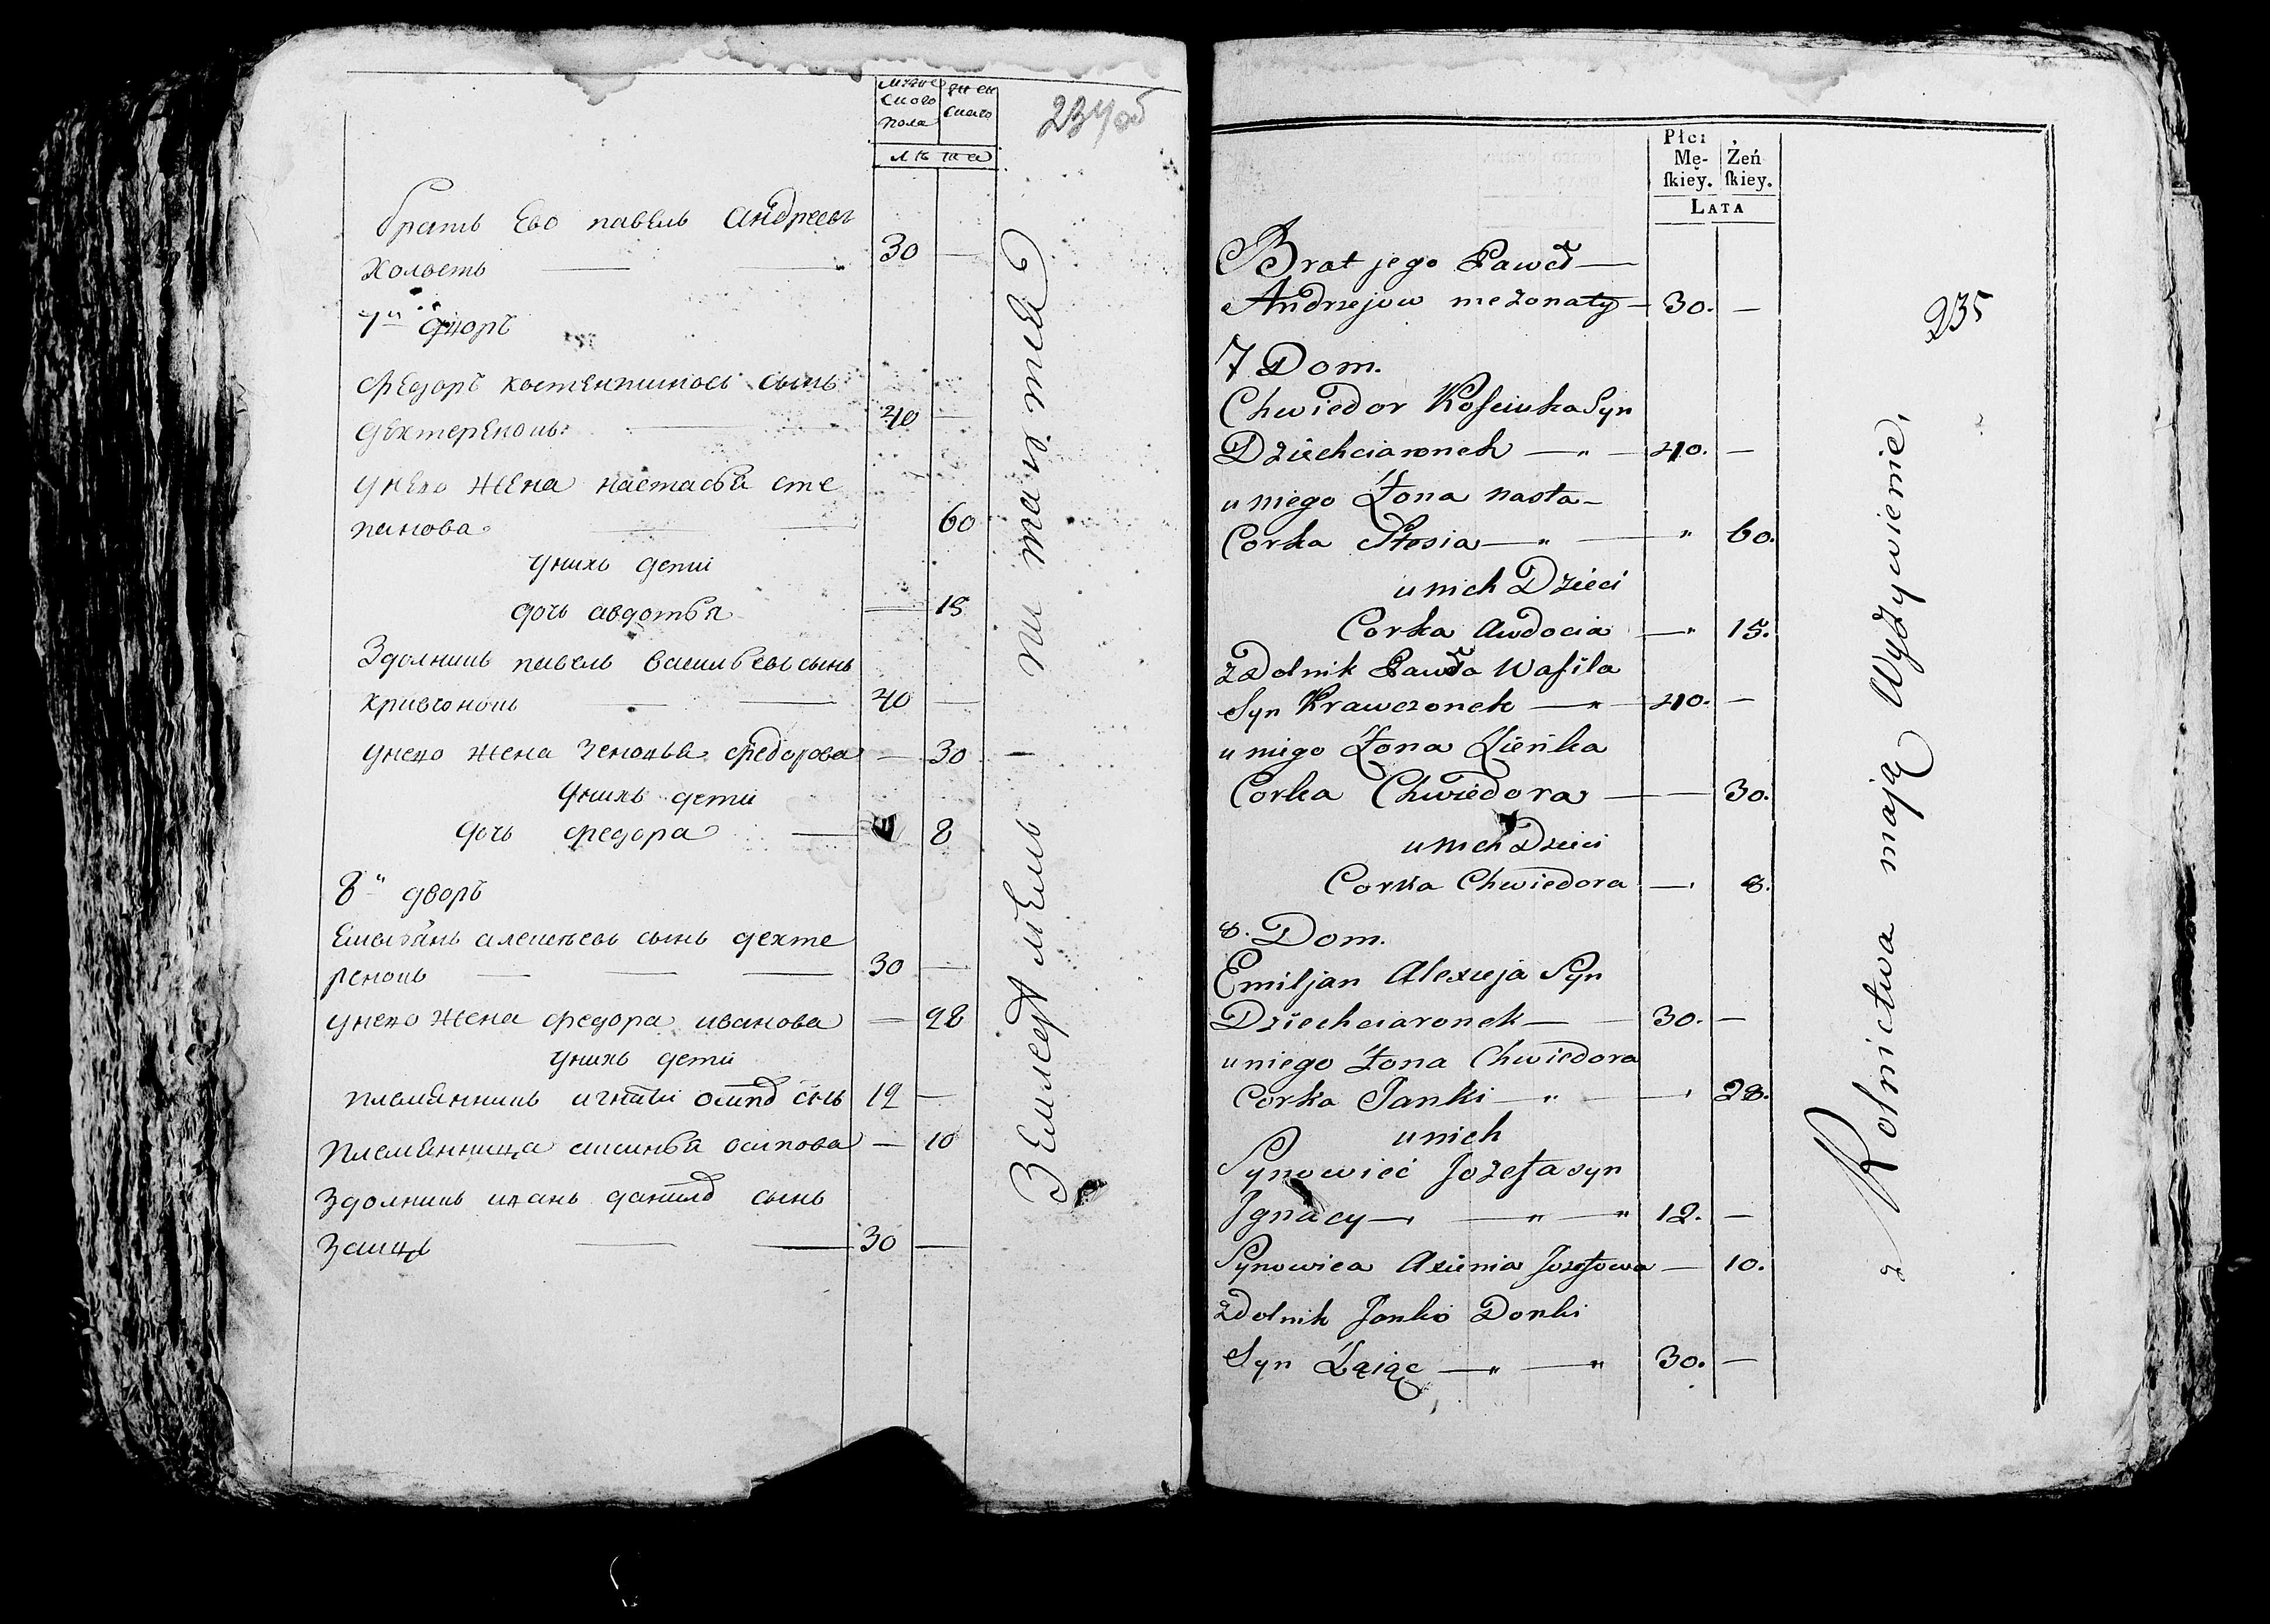 234об
муже
скаго
пола
жен
скаго
лѣта
братъ Ево павелъ андреевъ
холостъ 30 —
7й дворъ
Федоръ костентиновъ сынъ
дехтеренокъ 40 —
унего жена настасья сте
панова 60
унихъ дети
дочь авдотья — 15
Здолникъ павелъ васильевъ сынъ
кривчонокъ 40 —
унего жена Зеновья федорова — 30
унихъ дети
дочь федора — 8
8й дворъ
Емельянъ алексѣевъ сынъ дехте
ренокъ 30 —
унего жена федора иванова — 28
унихъ дети
племянникъ игнатей 12 —
племянница аксинья осипова — 10
Здолникъ иванъ сынъ
Заицъ 30 —
Землед мелъ питаютца
235
Płci
Mę-
ſkiey.
Żeń
ſkiey.
LATA
Brat jego Paweł —
Andrzejow nieżonaty — 30. —
7 Dom.
Chwiedor Kościuka Syn
Dziechciaronek — " — 40. —
u niego Żona nasta —
Corka Stesia — " — " 60.
u nich Dzieci
Corka Awdocia — " 15.
zdolnik Pawła Wasila
Syn Krawczonek — " — 40. —
u niego Żona Zieńka
Corka Chwiedora — — 30.
u nich Dzieci
Corka Chwiedora — 8.
8. Dom.
Emiljan Alexieja Syn
Dziechciaronek — — 30. —
u niego Żona Chwiedora
Corka Janki — " — 28.
u nich
Synowieć Jozefa syn
Jgnacy — " — " 12. —
Synowica Axienia Jozefowa — 10.
zdolnik Janko Donki
Syn Zając — " — " 30. —
z Rolnictwa mają Wyżywienie,